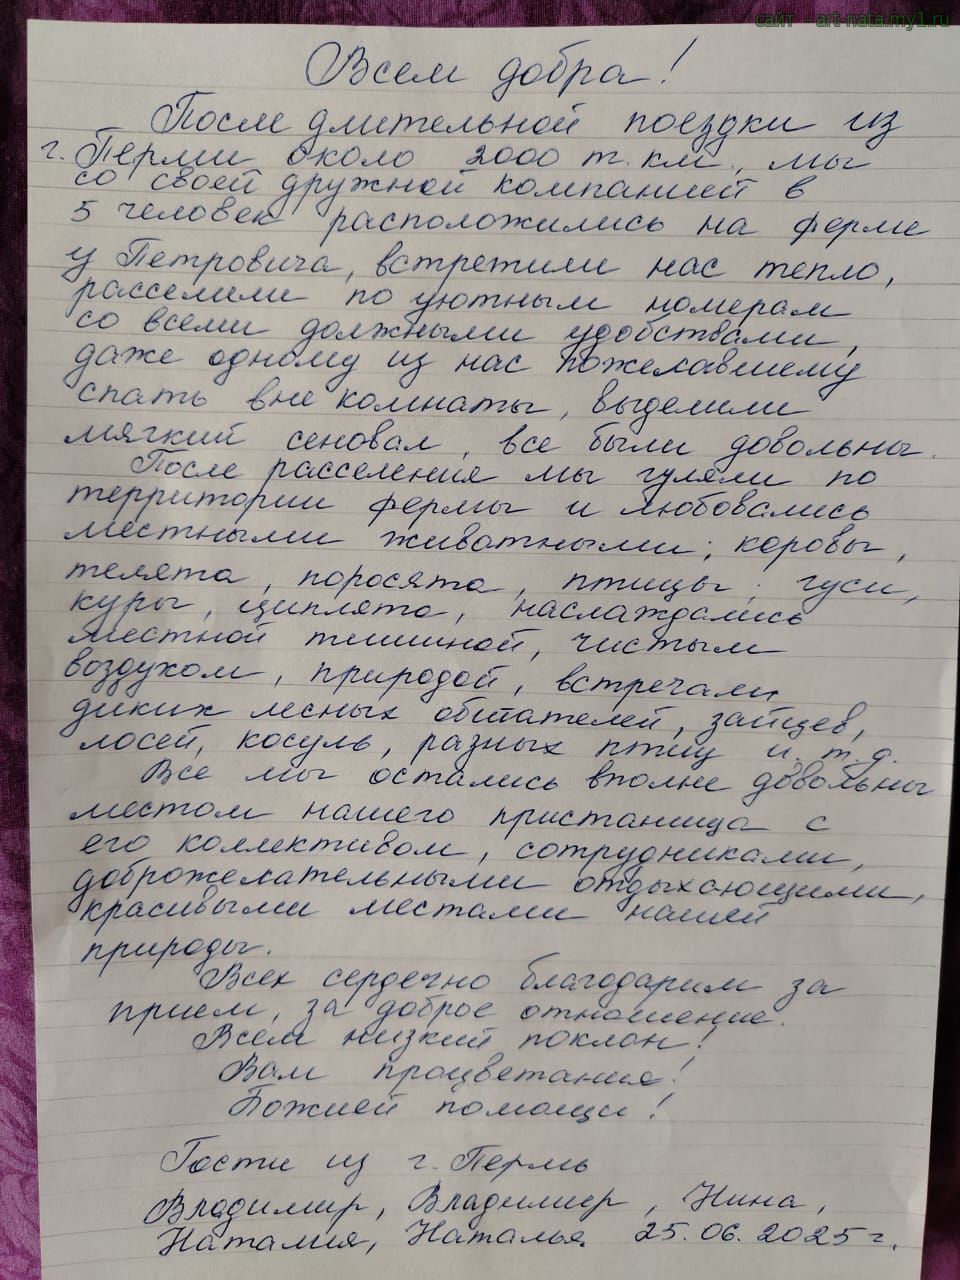 сайт - art-nata.my1.ru
Всем добра!
После длительной поездки из
г. Перми около 2000 т. км., мы
со своей дружной компанией в
5 человек расположились на ферме
у Петровича, встретили нас тепло,
расселили по уютным номерам
со всеми должными удобствами,
даже одному из нас пожелавшему
спать вне комнаты, выделили
мягкий сеновал, все были довольны.
После расселения мы гуляли по
территории фермы и любовались
местными животными; коровы,
телята, поросята, птицы; гуси,
куры, циплята, наслаждались
местной тишиной, чистым
воздухом, природой, встречали
диких лесных обитателей, зайцев,
лосей, косуль, разных птиц и т.д.
Все мы остались вполне довольны
местом нашего пристанища с
его коллективом, сотрудниками,
доброжелательными отдыхающими,
красивыми местами нашей
природы.
Всех сердечно благодарим за
прием, за доброе отношение.
Всем низкий поклон!
Вам процветания!
Божией помощи!
Гости из г. Пермь
Владимир, Владимир, Нина,
Наталия, Наталья 25.06.2025 г.